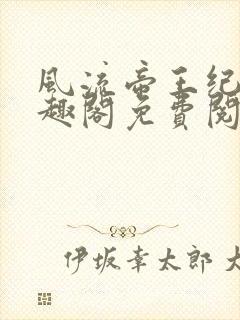 風流帝王纪
趣閣免費閱
伊坂幸太郎 大